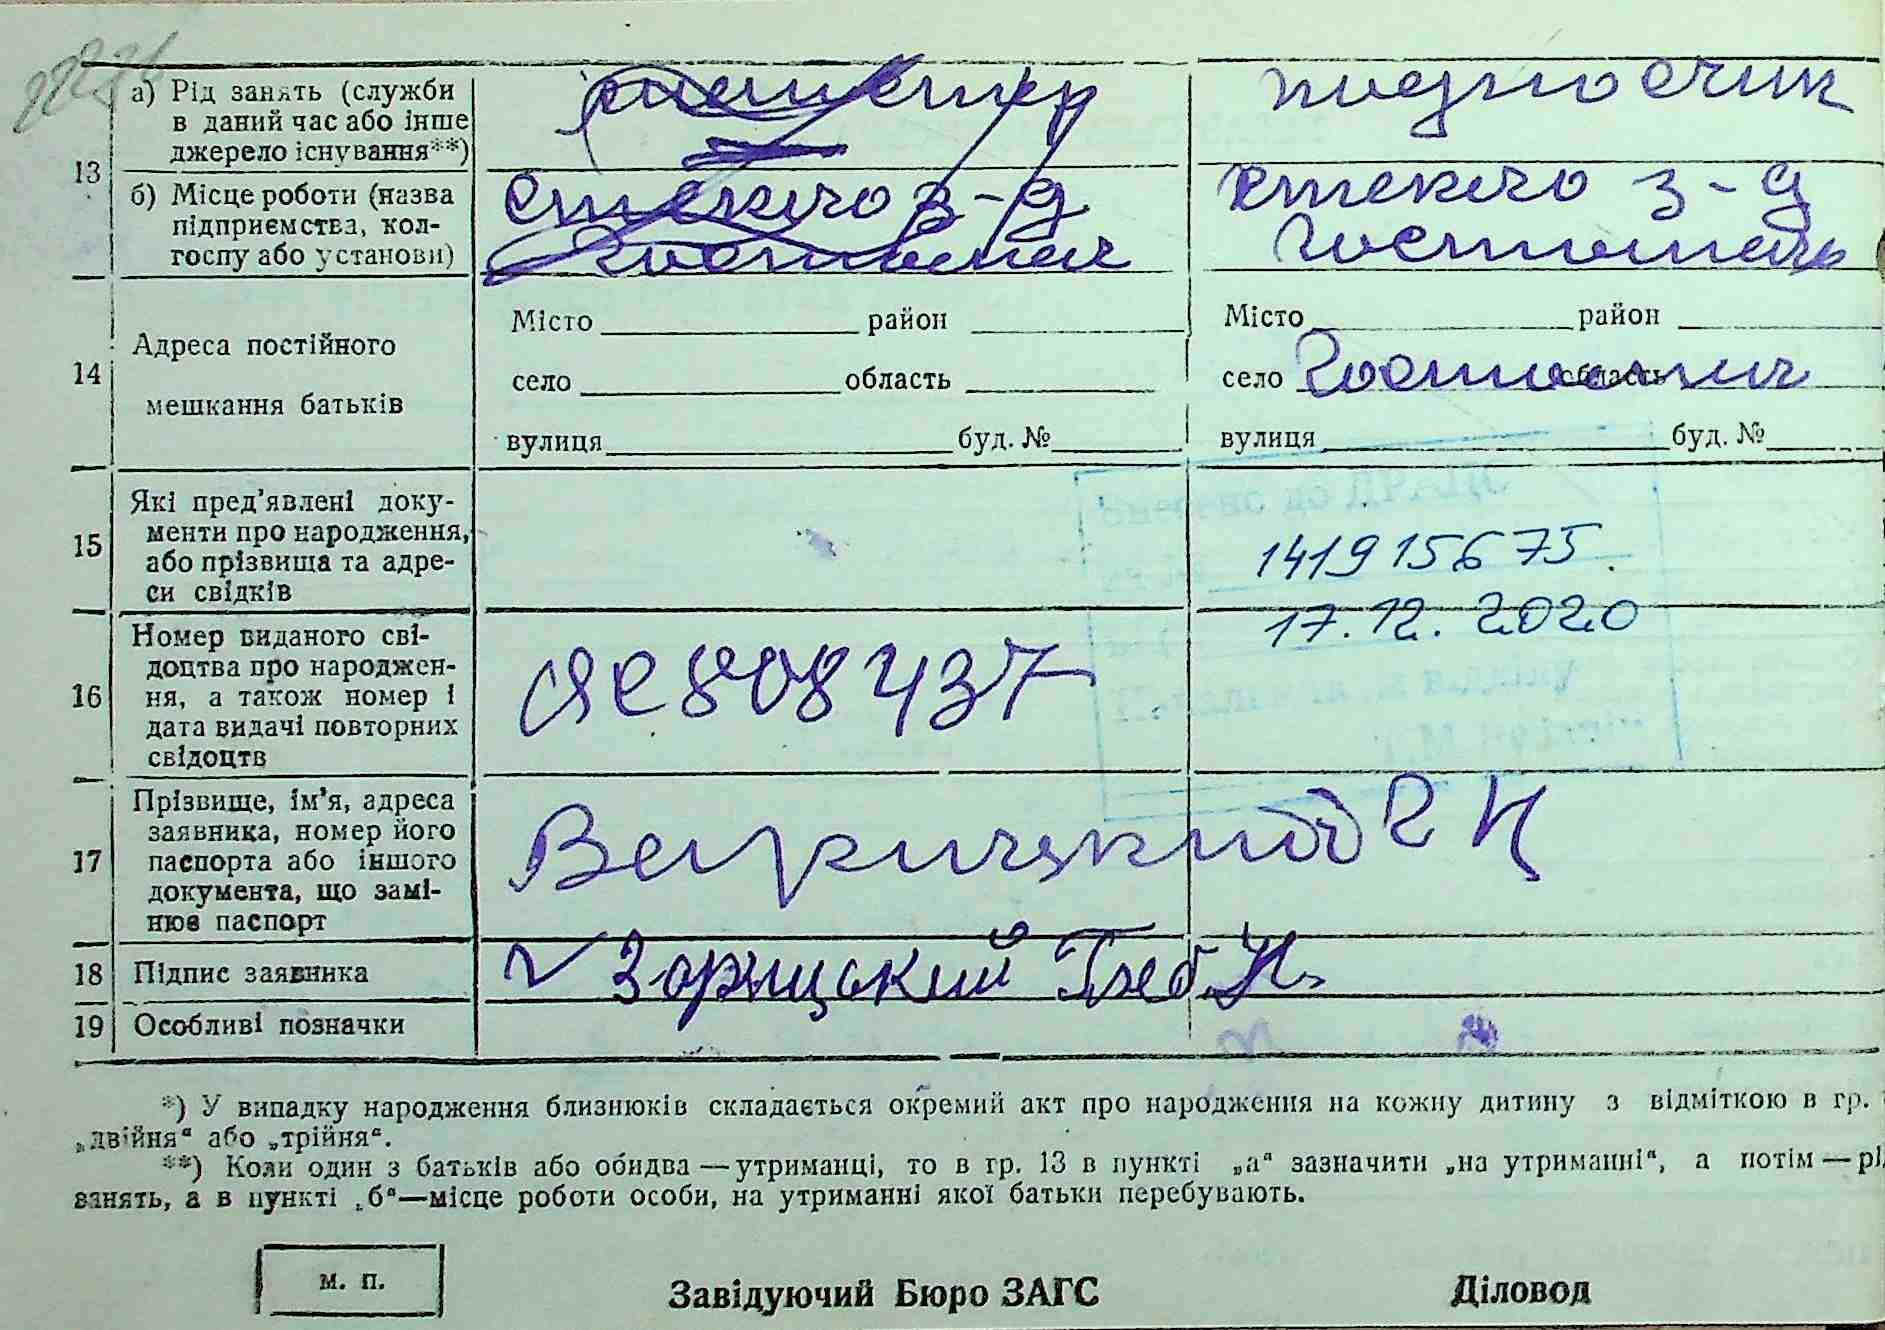 а) Рід занять (служби
в даний час або інше
джерело існування**)
подносчик
13
б) Місце роботи (назва
підприємства, кол-
госпу або установи)
стекло з-д
стекло з-д
Гостомель
Гостомель
14
Адреса постійного
мешкання батьків
Місто район
село область
вулиця буд. №
Місто район
село Гостомель область
вулиця буд. №
15
Які пред'явлені доку-
менти про народження,
або прізвища та адре-
си свідків
141915675.
17.12.2020
16
Номер виданого сві-
доцтва про народжен-
ня, а також номер і
дата видачі повторних
свідоцтв
808437
17
Прізвище, ім'я, адреса
заявника, номер його
паспорта або іншого
документа, що замі-
нює паспорт
18 Підпис заявника
Зорицский Глеб. Н.
19 Особливі позначки
*) У випадку народження близнюків складається окремий акт про народження на кожну дитину з відміткою в гр.
„двійня“ або „трійня“.
**) Коли один з батьків або обидва — утриманці, то в гр. 13 в пункті „а“ зазначити „на утриманні“, а потім —
занять, а в пункті „б“—місце роботи особи, на утриманні якої батьки перебувають.
м. п.
Завідуючий Бюро ЗАГС
Діловод